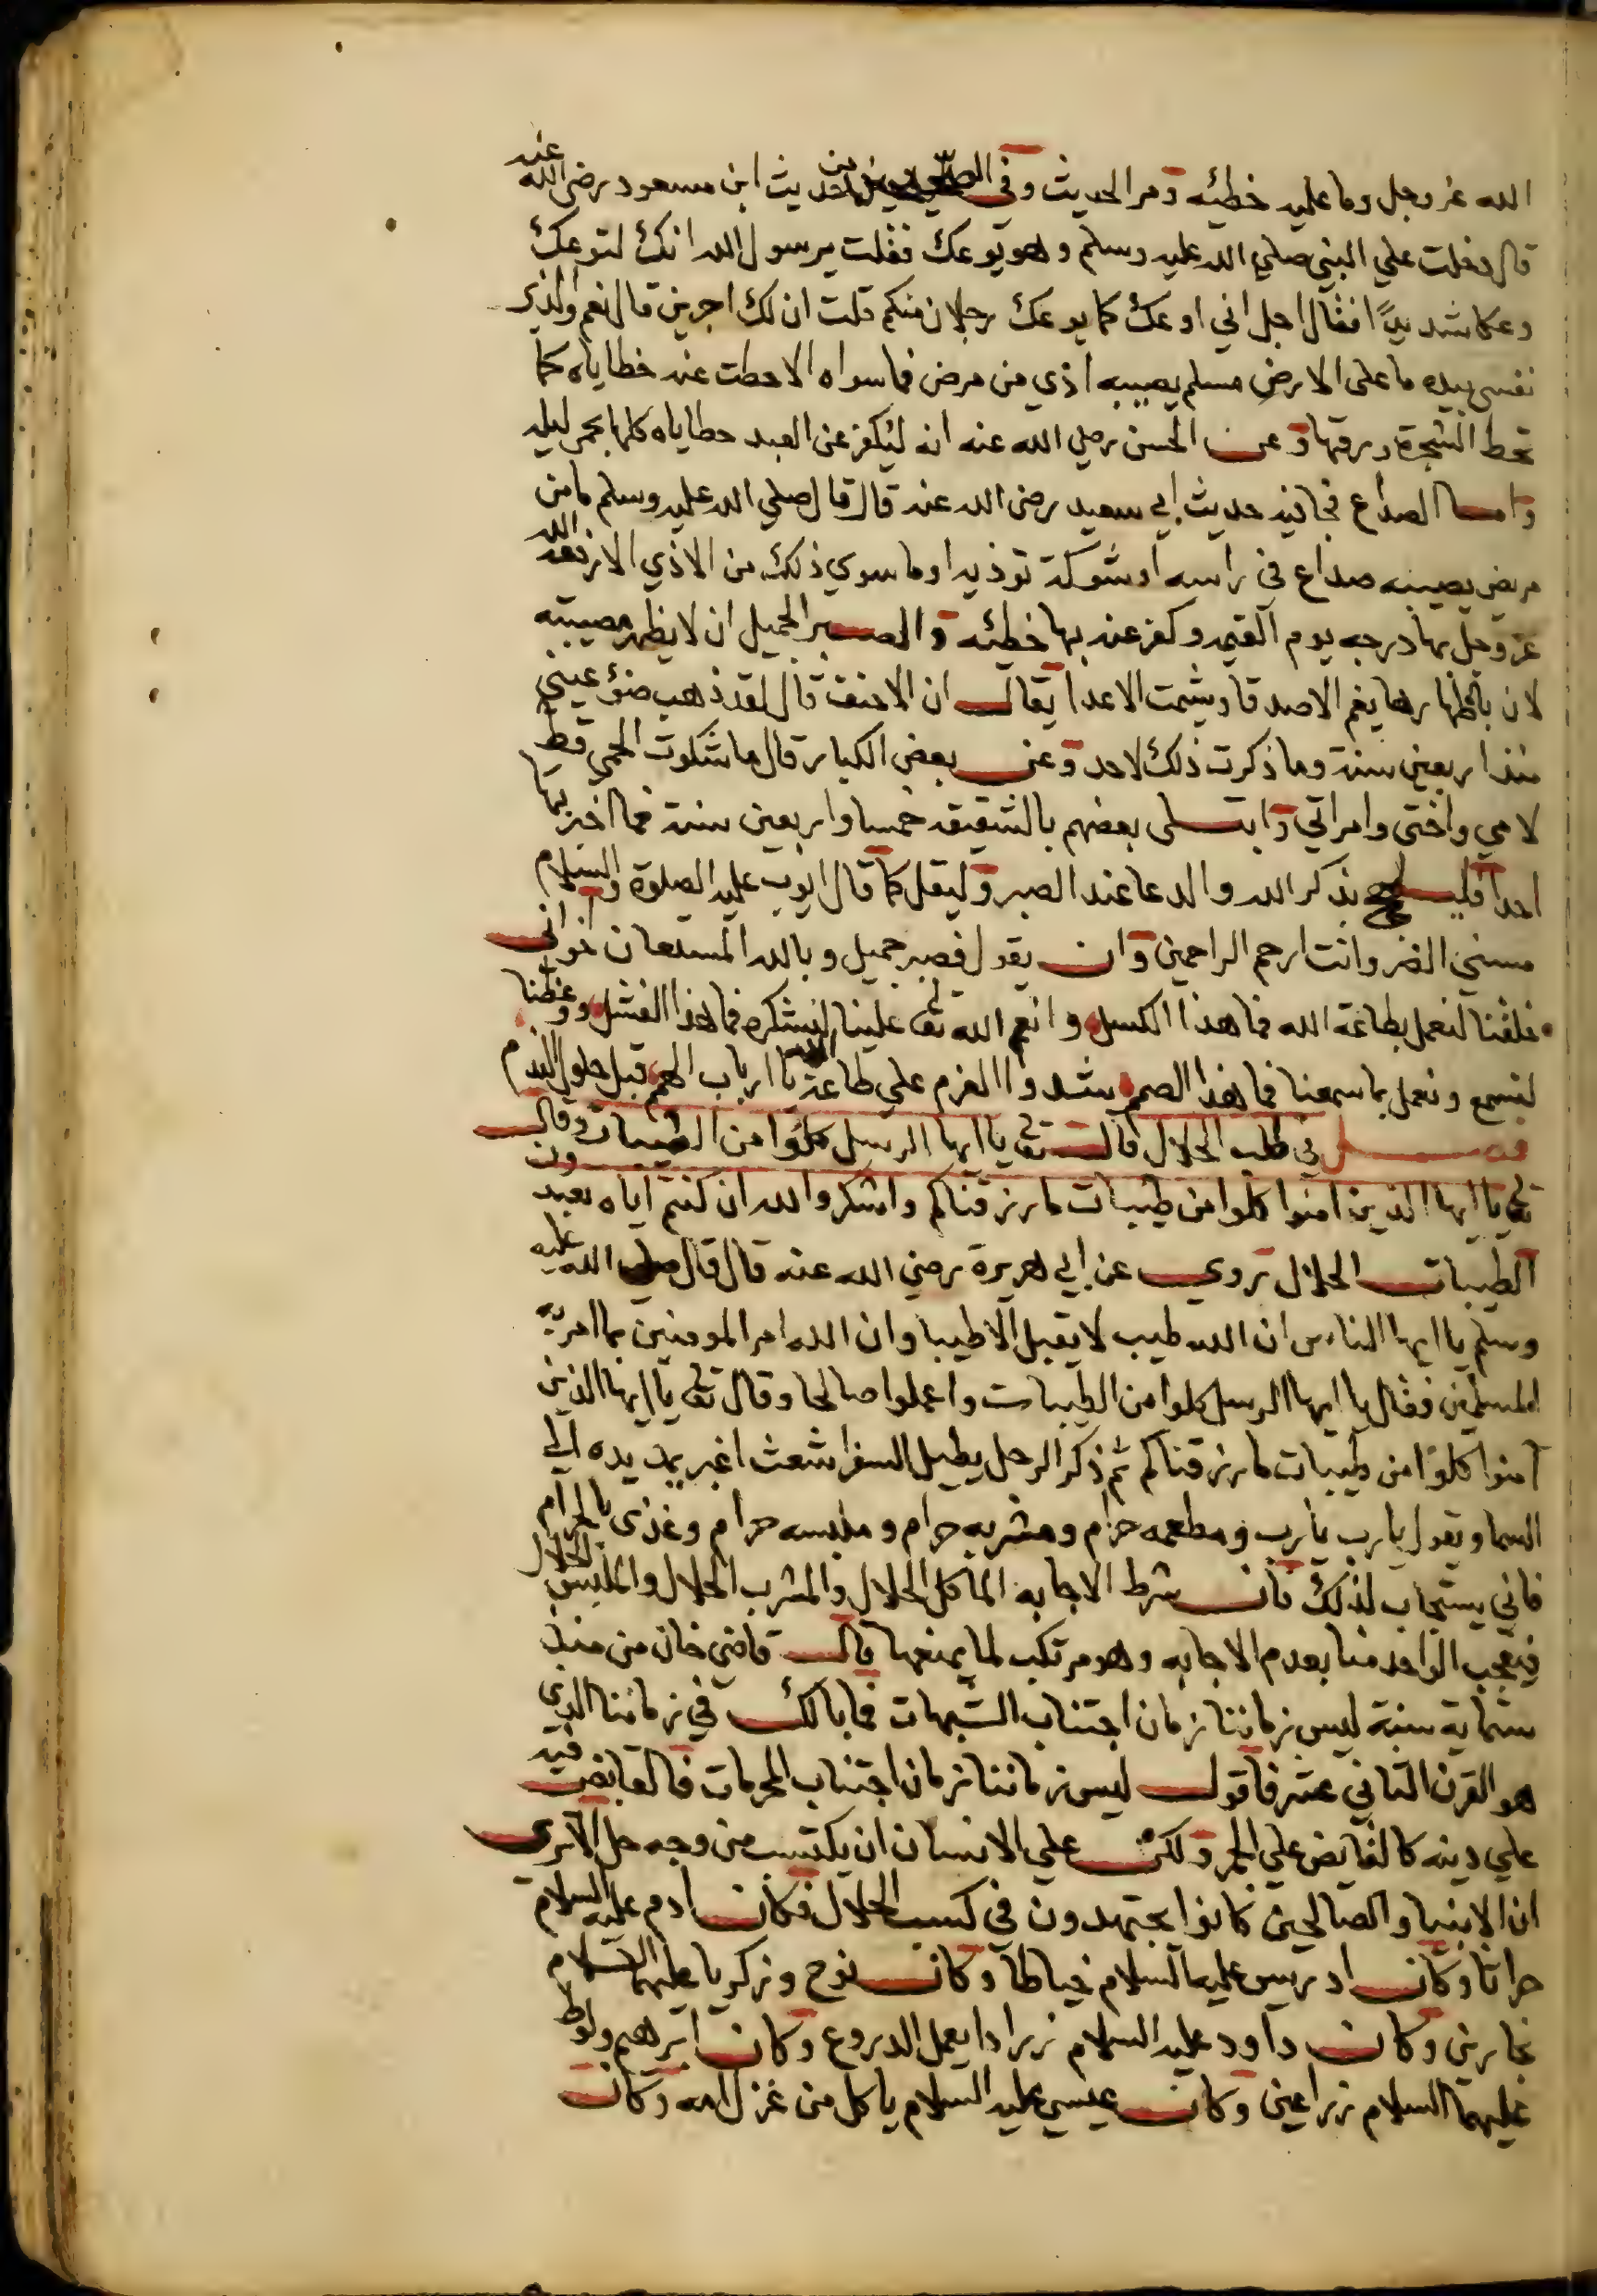 الله عز وجل وما عليه خطئه ومر الحديث وفي الصحيحين من حديث ابن مسعود رضي الله عنه
قال دخلت علي النبي صلي الله عليه وسلم وهو يوعك فقلت يرسول الله انك لتوعك
وعكا شديدًا فقال اجل اني اوعك كما يوعك رجلان منكم قلت ان لك اجرين قال نعم والذي
نفسي بيده ما على الارض مسلم يصيبه اذي من مرض فما سواه الا حطت عنه خطاياه كما
تحط الشجرة ورقها وعن الحسن رضي الله عنه انه ليكفر عن العبد خطاياه كلها بحمي ليله
واما الصداع فجا فيه حديث ابي سعيد رضي الله عنه قال قال صلي الله عليه وسلم ما من
مريض يصيبه صداع في راسه او شوكة توذيه او ما سوي ذلك من الاذي الا رفعه الله
عز وجل بها درجه يوم القيمه وكفر عنه بها خطئه والصبر الجميل ان لا يظهر مصيبته
لان باظهارها يغم الاصدقا ويشمت الاعدا يقال ان الاحنف قال لقد ذهب ضؤ عيني
منذ اربعين سنة وما ذكرت ذلك لاحد وعن بعض الكبار قال ما شكوت الحمي قط
لامي واختي وامراتي وابتلى بعضهم بالشقيقه خمسا واربعين سنة فما اخبر بها
احدا فليلهج بذكر الله والدعا عند الصبر وليقل كما قال ايوب عليه الصلوة والسلام
مسني الضر وانت ارحم الراحمين وان يقول فصبر جميل وبالله المستعان اخواني
خلقنا لنعمل بطاعة الله فما هذا الكسل وانعم الله تعالى علينا لنشكره فما هذا الفشل ووعظنا
لنسمع ونعمل بما سمعنا فما هذا الصمم شدوا العزم علي طاعة الله يا ارباب الهمم قبل حلول الندم
فصل في طلب الحلال قال تعالى يا ايها الرسل كلوا من الطيبات وقال
تعالى يا ايها الذين امنوا كلوا من طيبات ما رزقناكم واشكروا لله ان كنتم اياه تعبدون
الطيبات الحلال روي عن ابي هريرة رضي الله عنه قال قال صلي الله عليه
وسلم يا ايها الناس ان الله طيب لا يقبل الا طيبا وان الله امر المومنين بما امر به
المسلمين فقال يا ايها الرسل كلوا من الطيبات واعملوا صالحا وقال تعالى يا ايها الذين
آمنوا كلوا من طيبات ما رزقناكم ثم ذكر الرجل يطيل السفر اشعث اغبر يمد يده الي
السما ويقول يارب يارب ومطعمه حرام ومشربه حرام وملبسه حرام وغذي بالحرام
فاني يستجاب لذلك فان شرط الاجابه الماكل الحلال والمشرب الحلال والملبس الحلال
فيعجب الواحد منا بعدم الاجابه وهو مرتكب لما يمنعها قال قاضي خان من منذ
ستماية سنة ليس زماننا زمان اجتناب الشبهات فما بالك في زماننا الذي
هو القرن الثاني عشر فاقول ليس زماننا زمان اجتناب المحرمات فالقابض فيه
علي دينه كالقابض علي الجمر ولكن علي الانسان ان يكتسب من وجه حل الا تري
ان الانبيا والصالحين كانوا يجتهدون في كسب الحلال فكان ادم عليه السلام
حراثا وكان ادريس عليه السلام خياطا وكان نوح وزكريا عليهما السلام
نجارين وكان داود عليه السلام زرادا يعمل الدروع وكان ابرهيم ولوط
عليهما السلام زراعين وكان عيسي عليه السلام ياكل من غزل امه وكان